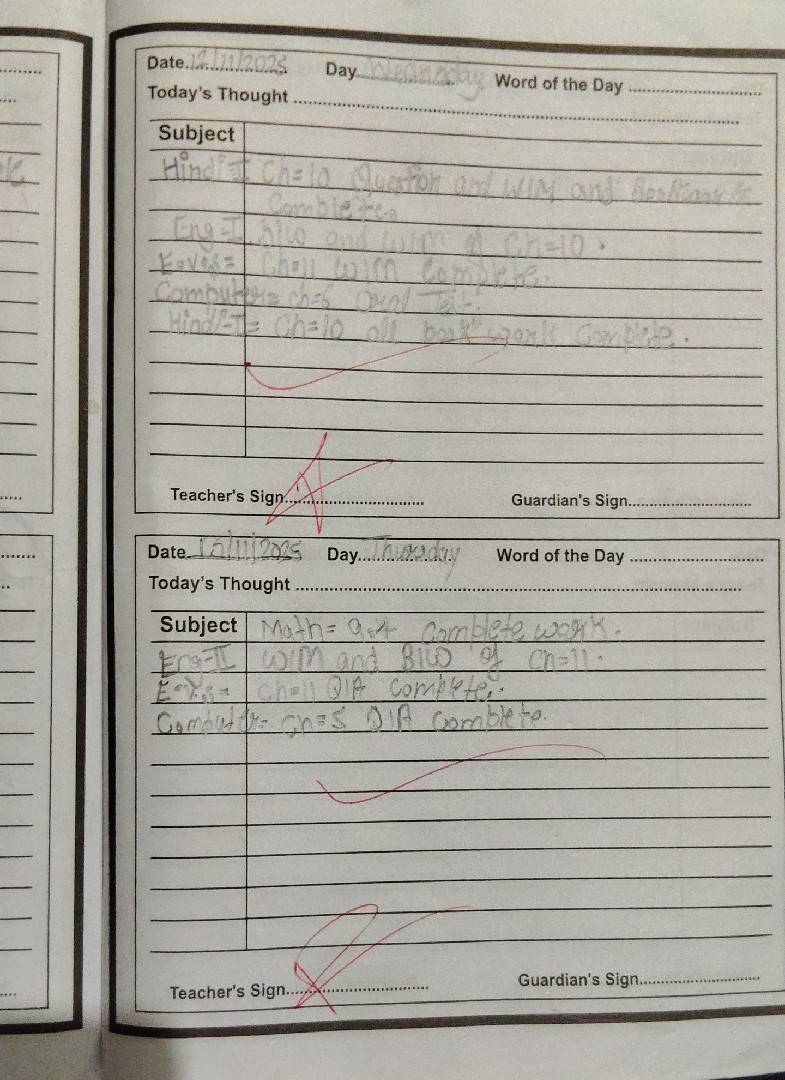 Date 12/11/2025 Day Wednesday Word of the Day
Today's Thought
Subject
Hindi-I Ch=10 Question and W/M and
Complete.
Eng-I B/W and W/M of Ch=10.
E.v.s= Ch=11 W/M Complete.
Computer= ch=5 Oral Test.
Hindi-I= Ch=10 all book work Complete.
Teacher's Sign Guardian's Sign
Date 13/11/2025 Day Thursday Word of the Day
Today's Thought
Subject Math= complete work.
Eng-II W/M and B/W of Ch=11.
E.v.s= Ch=11 Q/A Complete.
Computer= Ch=5 Q/A Complete.
Teacher's Sign Guardian's Sign